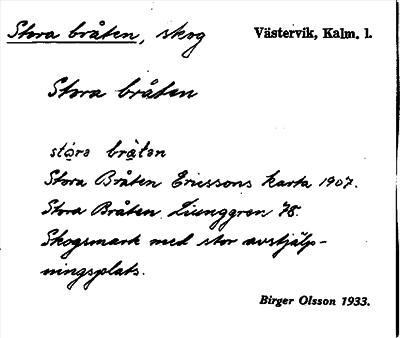 Stora bråten, skog Västervik, Kalm. l.
Stora bråten
stora bråten
Stora Bråten Ericssons karta 1907.
Stora Bråten Ljunggren 78.
Skogsmark med stor avstjälp-
ningsplats.
Birger Olsson 1933.